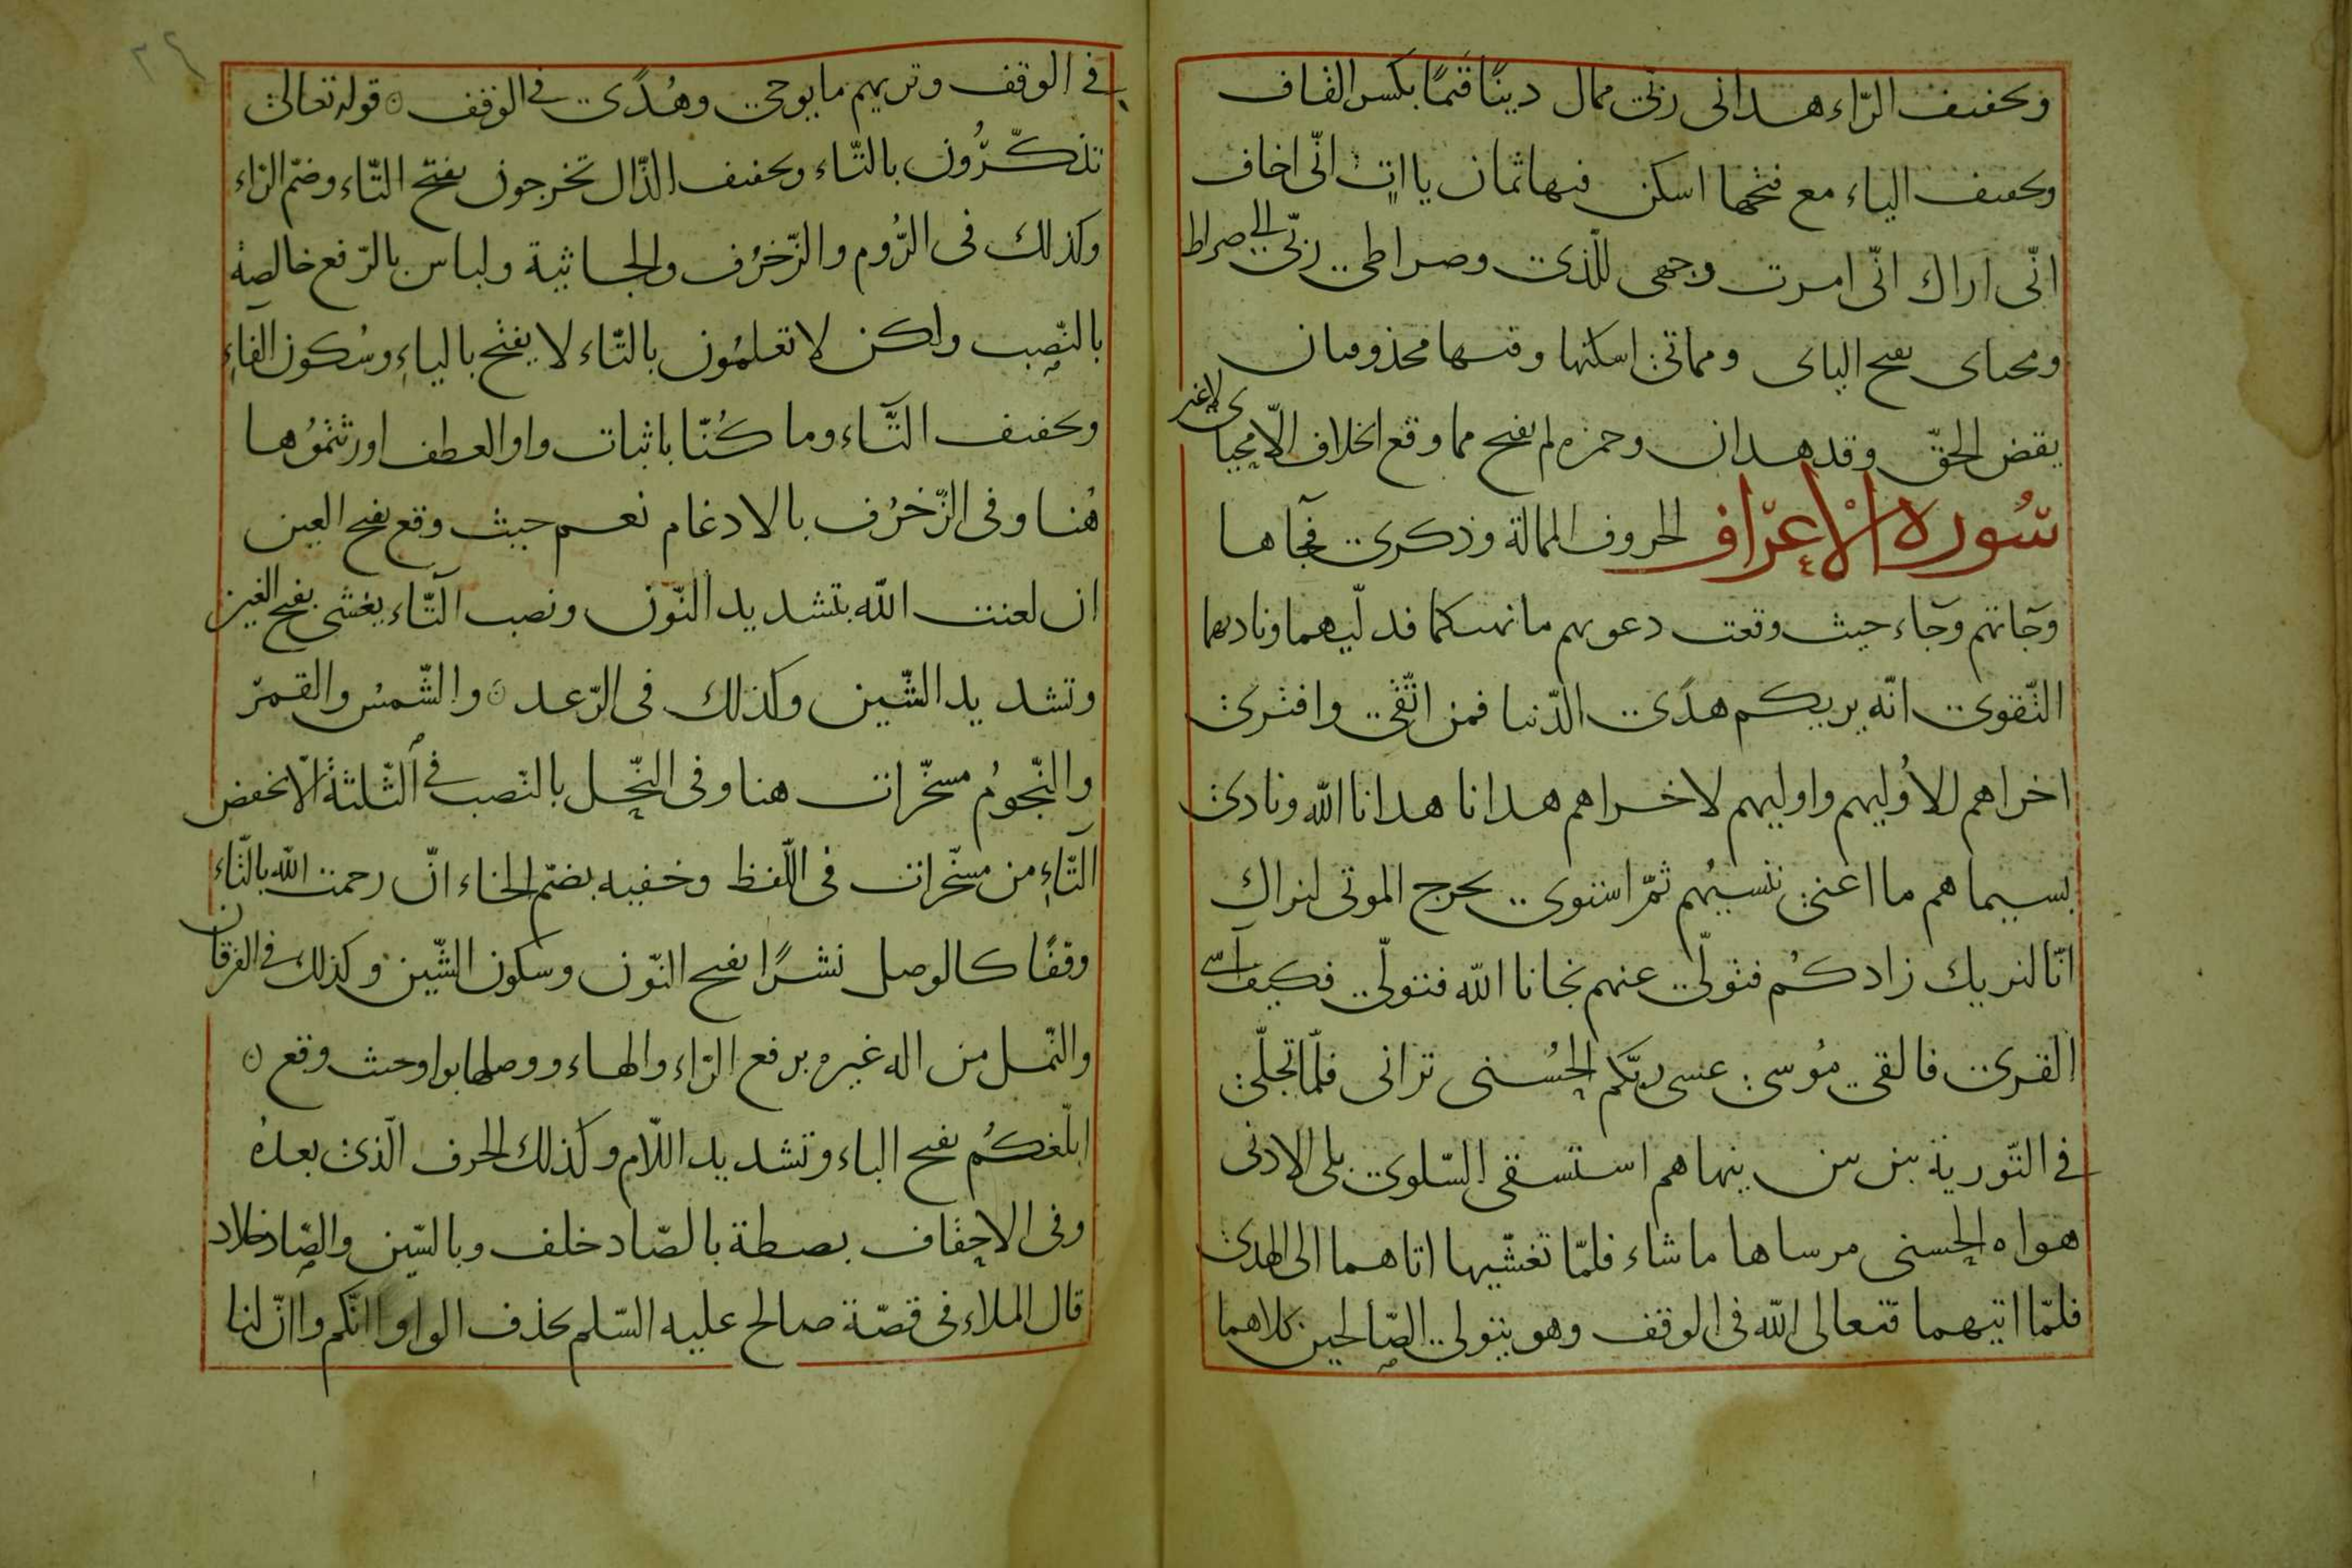 وتخفيف الرّاء هداني ربّي ممال دينًا قيَمًا بكسر القاف
وتخفيف الياء مع فتحها اسكن فيها ثمان يااات انّى اخاف
انّى اراك انّى امرت وجهى للّذى وصراطى ربّى الى صراط
ومحياى بفتح الياى ومماتى اسكنها وفيها محذوفان
يقض الحقّ وقد هدان وحمزه لم يفتح مما وقع الخلاف الّا محياى لاغير
سُورة الاعراف الحروف الممالة وذكرى فجآها
وجآتهم وجآء حيث وقعت دعويهم ما نهيكما فدلّيهما وناديهما
التّقوى انّه يريكم هدًى الدّنيا فمن اتّقى وافترى
اخراهم للاُوليهم واوليهم لاخراهم هدانا هدانا الله ونادى
بسيماهم ما اغنى ننسيُهم ثمّ استوى نخرج الموتى لنراك
انّا لنريك زادكُم فتولّى عنهم نجانا الله فتولّى فكيف آسى
القرى فالقى مُوسى عسى ربّكم الحُسنى ترانى فلمّا تجلّى
فى التّورية بين بين ينهاهم استسقى السّلوى بلى الادنى
هواه الحسنى مرساها ما شاء فلمّا تغشّيها اتاهما الى الهدى
فلمّا اتيهما فتعالى الله فى الوقف وهو يتولى الصّالحين كلاهما
فى الوقف وتريهم ما يوحى وهُدًى فى الوقف ۞ قوله تعالى
تذكّرُون بالتّاء وتخفيف الذّال تخرجون بفتح التّاء وضمّ الرّاء
وكذلك فى الرُّوم والزّخرُف والجاثية ولباس بالرّفع خالصة
بالنّصب ولكن لا تعلمُون بالتّاء لا يفتح بالياء وسُكون الفاء
وتخفيف التّاء وما كُنّا باثبات واو العطف اورثتمُوها
هُنا وفى الزّخرُف بالادغام نعم حيث وقع بفتح العين
ان لعنت الله بتشديد النّون ونصب التّاء يغشى بفتح الغين
وتشديد الشّين وكذلك فى الرّعد ۞ والشّمسُ والقمرُ
والنّجومُ مسخّرات هنا وفى النّحل بالنّصب فى الثّلثة الّا بخفض
التّاء من مسخّرات فى اللّفظ وخفيه بضمّ الخاء انّ رحمت الله بالتّاء
وقفًا كالوصل نشرًا بفتح النّون وسكون الشّين وكذلك فى الفرقان
والنّمل من اله غيره برفع الرّاء والهاء ووصلها بواو حيث وقع ۞
ابلّغكُم بفتح الباء وتشديد اللّام وكذلك الحرف الّذى بعدهُ
وفى الاحقاف بصطة بالصّاد خلف وبالسّين والصّاد خلاد
قال الملاء فى قصّة صالح عليه السّلم بحذف الواو اانّكم واانّ لنا